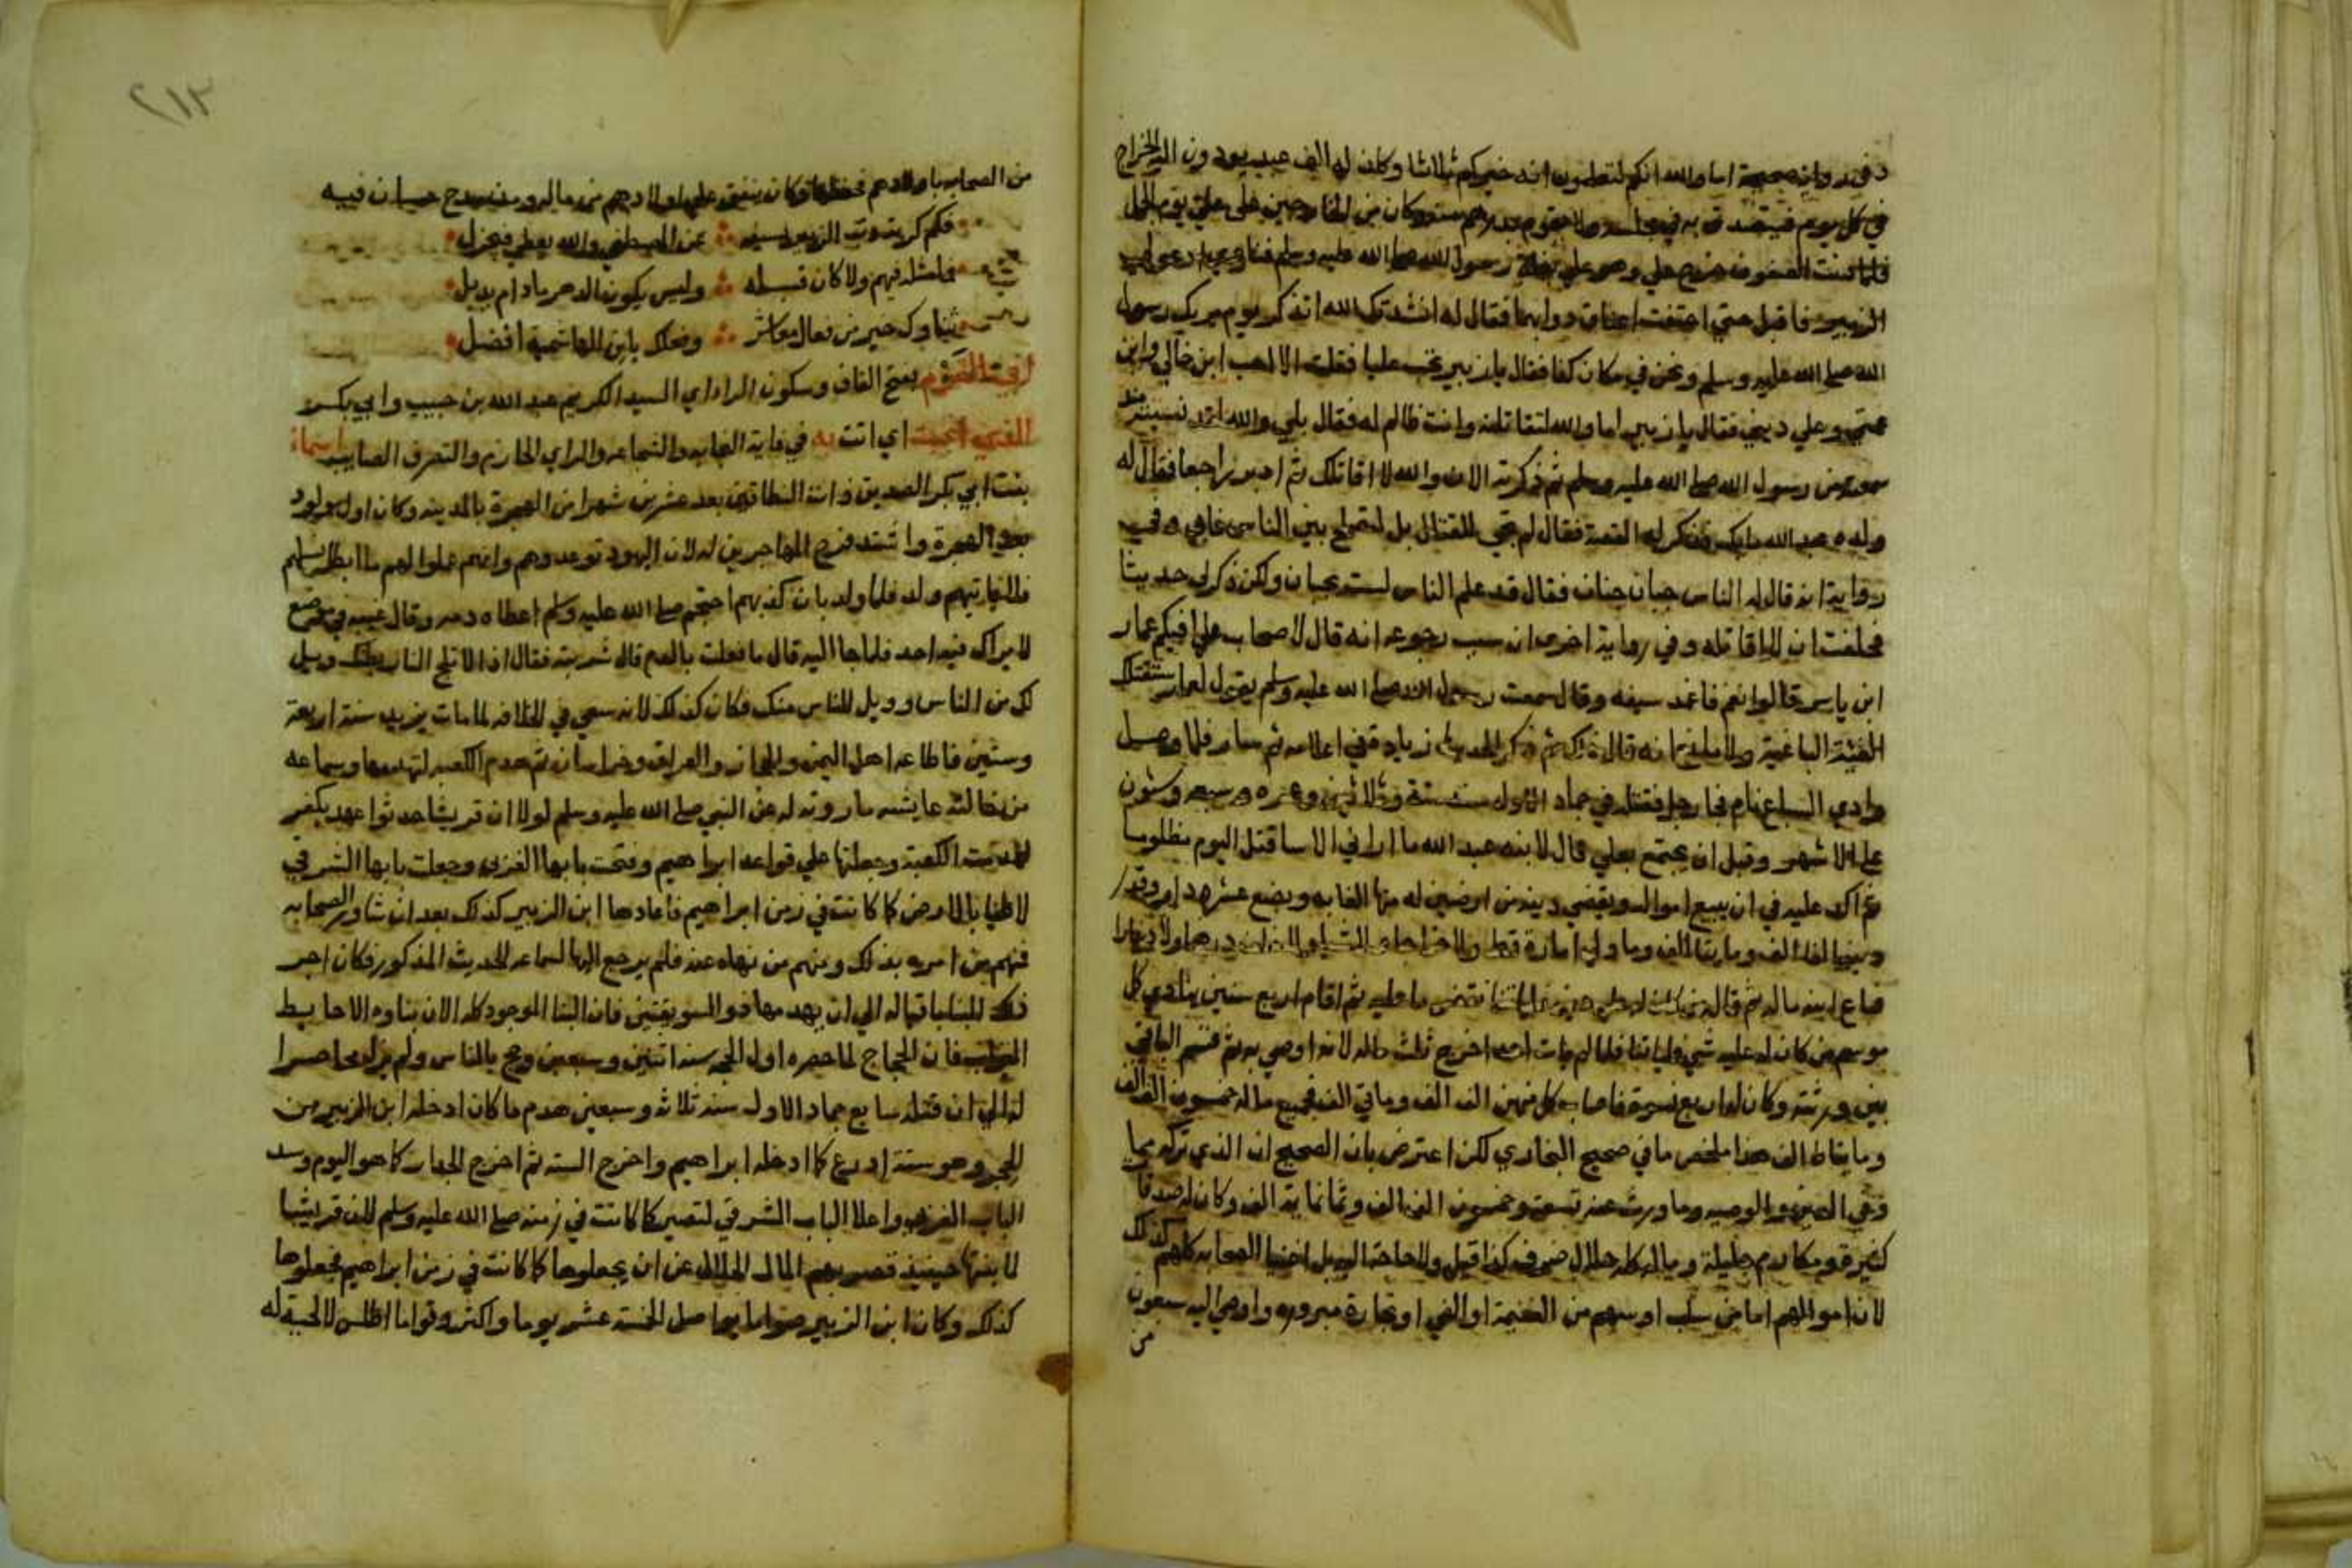 وفي رواية صحيحة اما والله انكم لتعلمون انه خيركم ثلاثا وكان له الف عبد يودون اليه الخراج
في كل يوم فيتصدق به في مجلسه ولا يقوم بدرهم منه وكان من الخارجين على علي يوم الجمل
فلما دنت الصفوف خرج علي وهو على بغلة رسول الله صلى الله عليه وسلم فنادى ادعوا لي
الزبير فاقبل حتى اختلفت اعناق دوابهما فقال له انشدتك الله اتذكر يوم مر بك رسول
الله صلى الله عليه وسلم ونحن في مكان كذا فقال يا زبير تحب عليا فقلت الا احب ابن خالي وابن
عمتي وعلى ديني فقال يا زبير اما والله لتقاتلنه وانت ظالم له فقال بلى والله لقد نسيته منذ
سمعته من رسول الله صلى الله عليه وسلم ثم ذكرته الان والله لا اقاتلك ثم ادبر راجعا فقال له
ولده عبد الله مالك فذكر له القصة فقال لم تجي للقتال بل لتصلح بين الناس فابى وفي
رواية انه قال له الناس جبان جبان فقال قد علم الناس لست بجبان ولكن ذكرني حديثا
فحلفت ان لا اقاتله وفي رواية اخرى ان سبب رجوعه انه قال لاصحاب علي افيكم عمار
ابن ياسر قالوا نعم فاغمد سيفه وقال سمعت رسول الله صلى الله عليه وسلم يقول لعمار ستقتلك
الفئة الباغية ثم سار فلما وصل
وادي السباع نام فجا رجل فقتله في جماد الاول سنة ستة وثلاثين وعمره سبعه وستون
على الاشهر وقبل ان يجتمع بعلي قال لابنه عبد الله ما اراني الا ساقتل اليوم مظلوما
ثم اكد عليه في ان يبيع امواله ويقضي دينه من ارضين له منها الغابه وبضع عشر دار وقدر
دينه الفا الف ومايتا الف وما ولي امارة قط ولا خراجا
فباع ابنه ماله ثم اقام اربع سنين ينادي كل
موسم من كان له عليه شي فلياتنا فلما لم يات احد اخرج ثلث ماله لانه اوصى به ثم قسم الباقي
بين ورثته وكان له اربع نسوة فاصاب كل منهن الف الف ومايتي الف فجميع ماله خمسون الف الف
ومايتا الف هذا ملخص ما في صحيح البخاري لكن اعترض بان الصحيح ان الذي تركه
في الدين والوصيه وما ورث عنه تسعة وخمسون الف الف وثمانماية الف وكان له صدقات
كثيرة ومكارم جليلة وماله كله حلال ولا حاجة اليه بل اغنيا الصحابه كلهم كذلك
لان اموالهم اما من سلب او سهم من الغنيمة او الفي او تجارة مبروره واوصى اليه سبعون
من
٢١٣
من الصحابه باولادهم فحفظها وكان ينفق على اولادهم من ماله ومن مدح حسان فيه
فكم كربة ذب الزبير بسيفه عن المصطفى والله يعطي فيجزل
فما مثله فيهم ولا كان قبله وليس يكون الدهر ما دام يذبل
ثناوك خير من فعال معاشر وفعلك يا ابن الهاشمية افضل
القرم بفتح القاف وسكون الرا اي السيد الكريم عبد الله بن حبيب وابي بكر
الذي انجبت اي اتت به في غاية النجابه والشجاعه والراي الحازم والتصرف الصايب اسماء
بنت ابي بكر الصديق ذات النطاقين بعد عشرين شهرا من الهجرة بالمدينه وكان اول مولود
بعد الهجرة واشتد فرح المهاجرين له لان اليهود توعدوهم وانهم عملوا لهم ما ابطل نسلهم
فلا ياتيهم ولد فلما ولد بان كذبهم احتجم صلى الله عليه وسلم اعطاه دمه وقال غيبه في موضع
لا يراك فيه احد فلما جا اليه قال ما فعلت بالدم قال شربته فقال اذا لا تلج النار بطنك ويل
لك من الناس وويل للناس منك فكان كذلك لانه سعى في الخلافه لما مات يزيد سنة اربعة
وستين فاطاعه اهل اليمن والحجاز والعراق وخراسان ثم هدم الكعبه لتهدمها وسماعه
من خالته عايشه ما روته له عن النبي صلى الله عليه وسلم لولا ان قريشا حدثوا عهد بكفر
لهدمت الكعبة وجعلتها على قواعد ابراهيم وفتحت بابها الغربي وجعلت بابها الشرقي
لاطيا بالارض كما كانت في زمن ابراهيم فاعادها ابن الزبير كذلك بعد ان شاور الصحابه
فمنهم من امره بذلك ومنهم من نهاه عنه فلم يرجع اليها لسماعه للحديث المذكور فكان اجر
ذلك البنا باقيا له الى ان يهدمها ذو السويقتين فان البنا الموجود كله الان بناوه الا حايط
الميزاب فان الحجاج لما حصره اول الحجه سنه اثنين وسبعين وحج بالناس ولم يزل محاصرا
له الى ان قتله سابع جماد الاوله سنه ثلاثه وسبعين هدم ما كان ادخله ابن الزبير من
الحجر وهو ستة اذرع كما ادخله ابراهيم واخرج الستة ثم اخرج الجدار كما هو اليوم وسد
الباب الغربي واعلا الباب الشرقي لتصير كما كانت في زمنه صلى الله عليه وسلم لان قريشا
لما بنتها حينيذ قصر بهم المال الحلال عن ان يجعلوها كما كانت في زمن ابراهيم فجعلوها
كذلك وكان ابن الزبير صواما يواصل الخمسة عشر يوما واكثر وقواما اطلس لا لحية له